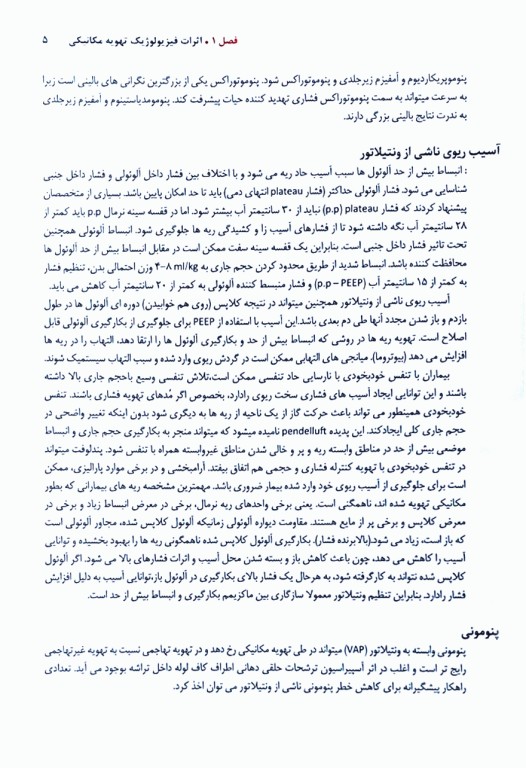 فصل ۱ • اثرات فیزیولوژیک تهویه مکانیکی ۵
پنوموپریکاردیوم و آمفیزم زیرجلدی و پنوموتوراکس شود. پنوموتوراکس یکی از بزرگترین نگرانی های بالینی است زیرا
به سرعت میتواند به سمت پنوموتوراکس فشاری تهدید کننده حیات پیشرفت کند. پنومومدیاستینوم و آمفیزم زیرجلدی
به ندرت نتایج بالینی بزرگی دارند.
آسیب ریوی ناشی از ونتیلاتور
: انبساط بیش از حد آلوئول ها سبب آسیب حاد ریه می شود و با اختلاف بین فشار داخل آلوئولی و فشار داخل جنبی
شناسایی می شود. فشار آلوئولی حداکثر (فشار plateau انتهای دمی) باید تا حد امکان پایین باشد. بسیاری از متخصصان
پیشنهاد کردند که فشار plateau (p.p) نباید از ۳۰ سانتیمتر آب بیشتر شود. اما در قفسه سینه نرمال p.p باید کمتر از
۲۸ سانتیمتر آب نگه داشته شود تا از فشارهای آسیب زا و کشیدگی ریه ها جلوگیری شود. انبساط آلوئولی همچنین
تحت تاثیر فشار داخل جنبی است. بنابراین یک قفسه سینه سفت ممکن است در مقابل انبساط بیش از حد آلوئول ها
محافظت کننده باشد. انبساط شدید از طریق محدود کردن حجم جاری به ۴-۸ ml/kg وزن احتمالی بدن، تنظیم فشار
به کمتر از ۱۵ سانتیمتر آب (p.p – PEEP) و فشار منبسط کننده آلوئولی به کمتر از ۲۰ سانتیمتر آب کاهش می یابد.
آسیب ریوی ناشی از ونتیلاتور همچنین میتواند در نتیجه کلاپس (روی هم خوابیدن) دوره ای آلوئول ها در طول
بازدم و باز شدن مجدد آنها طی دم بعدی باشد.این آسیب با استفاده از PEEP برای جلوگیری از بکارگیری آلوئولی قابل
اصلاح است. تهویه ریه ها در روشی که انبساط بیش از حد و بکارگیری آلوئول ها را ارتقا دهد، التهاب را در ریه ها
افزایش می دهد (بیوتروما). میانجی های التهابی ممکن است در گردش ریوی وارد شده و سبب التهاب سیستمیک شوند.
بیماران با تنفس خودبخودی با نارسایی حاد تنفسی ممکن است،تلاش تنفسی وسیع باحجم جاری بالا داشته
باشند و این توانایی ایجاد آسیب های فشاری سخت ریوی رادارد، بخصوص اگر مُدهای تهویه فشاری باشند. تنفس
خودبخودی همینطور می تواند باعث حرکت گاز از یک ناحیه از ریه ها به دیگری شود بدون اینکه تغییر واضحی در
حجم جاری کلی ایجادکند. این پدیده pendelluft نامیده میشود که میتواند منجر به بکارگیری حجم جاری و انبساط
موضعی بیش از حد در مناطق وابسته ریه و پر و خالی شدن مناطق غیروابسته همراه با تنفس شود. پندلوفت میتواند
در تنفس خودبخودی با تهویه کنترله فشاری و حجمی هم اتفاق بیفتد. آرامبخشی و در برخی موارد پارالیزی، ممکن
است برای جلوگیری از آسیب ریوی خود وارد شده بیمار ضروری باشد. مهمترین مشخصه ریه های بیمارانی که بطور
مکانیکی تهویه شده اند، ناهمگنی است. یعنی برخی واحدهای ریه نرمال، برخی در معرض انبساط زیاد و برخی در
معرض کلاپس و برخی پر از مایع هستند. مقاومت دیواره آلوئولی زمانیکه آلوئول کلاپس شده، مجاور آلوئولی است
که باز است، زیاد می شود.(بالابرنده فشار). بکارگیری آلوئول کلاپس شده ناهمگونی ریه ها را بهبود بخشیده و توانایی
آسیب را کاهش می دهد، چون باعث کاهش باز و بسته شدن محل آسیب و اثرات فشارهای بالا می شود. اگر آلوئول
کلاپس شده نتواند به کارگرفته شود، به هرحال یک فشار بالای بکارگیری در آلوئول باز،توانایی آسیب به دلیل افزایش
فشار رادارد. بنابراین تنظیم ونتیلاتور معمولا سازگاری بین ماکزیمم بکارگیری و انبساط بیش از حد است.
پنومونی
پنومونی وابسته به ونتیلاتور (VAP) میتواند در طی تهویه مکانیکی رخ دهد و در تهویه تهاجمی نسبت به تهویه غیرتهاجمی
رایج تر است و اغلب در اثر آسپیراسیون ترشحات حلقی دهانی اطراف کاف لوله داخل تراشه بوجود می آید. تعدادی
راهکار پیشگیرانه برای کاهش خطر پنومونی ناشی از ونتیلاتور می توان اخذ کرد.